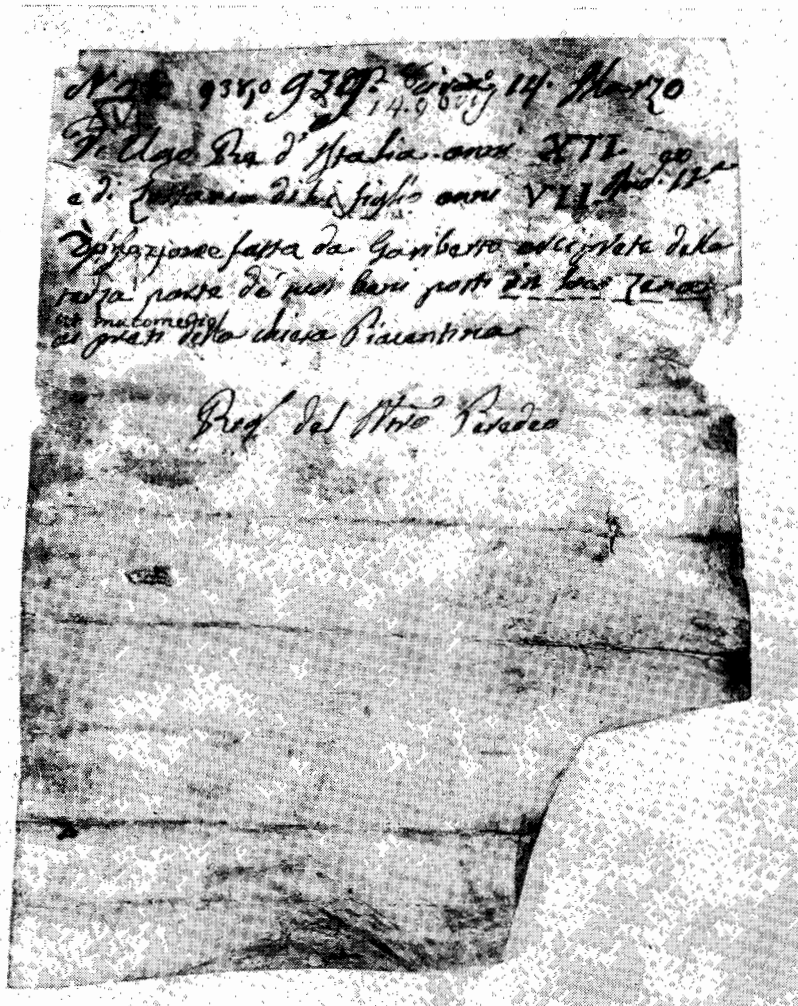 938,0 939. 14. Marzo
14.9
XV
di Ugo Re d'Italia anni XII.
e di Lottario di lui figlio anni VII. Ind. 12.a
Donazione fatta da Gariberto arciprete della
metà parte de' suoi beni posti in loco
ai preti della chiesa Piacentina
Rog.o del Peredeo